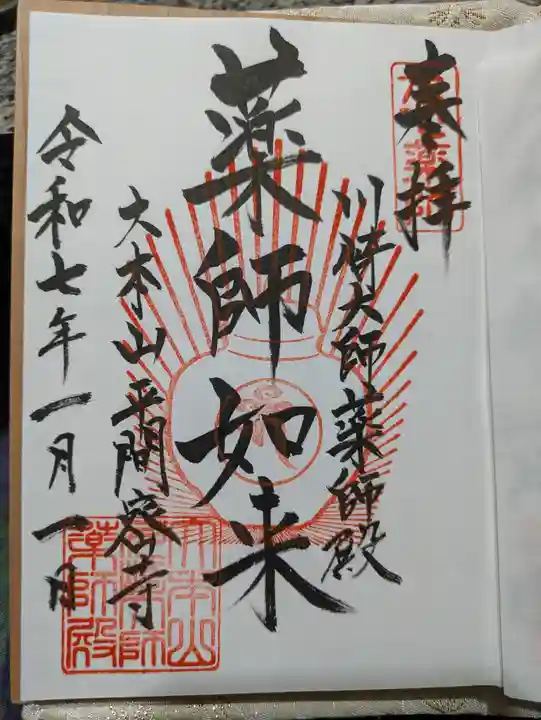 奉拝
川崎大師薬師殿
薬師如来
大本山平間寺
令和七年一月一日
大本山
川崎大師
薬師殿